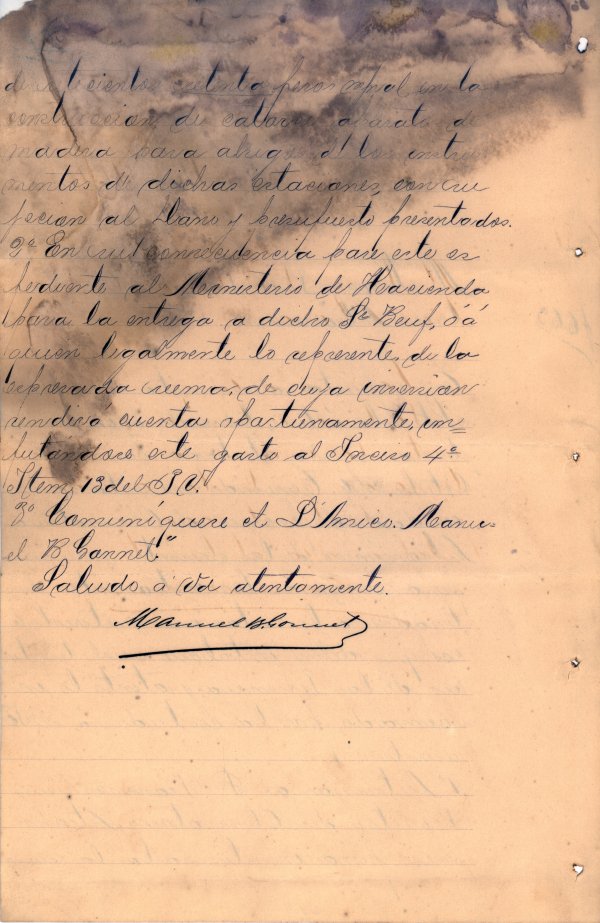 cientos setenta pesos m/nal, en la
construccion de catorce aparatos de
madera para abrigo de los instru
mentos de dichas estaciones, con suj
pecion al plano y presupuesto presentados.
2º En su consecuencia pase este es
pediente al Ministerio de Hacienda
para la entrega a dicho Sr Beuf, ó á
quien legalmente lo represente, de la
espresada suma, de cuya inversion
rendira cuenta oportunamente, im=
putandose este gasto al Inciso 4º
Item 13 del P. V.
3º Comuníquese et. D'Amico. Manu=
el B Gonnet."
Saludo á Vd atentamente.
Manuel B. Gonnet